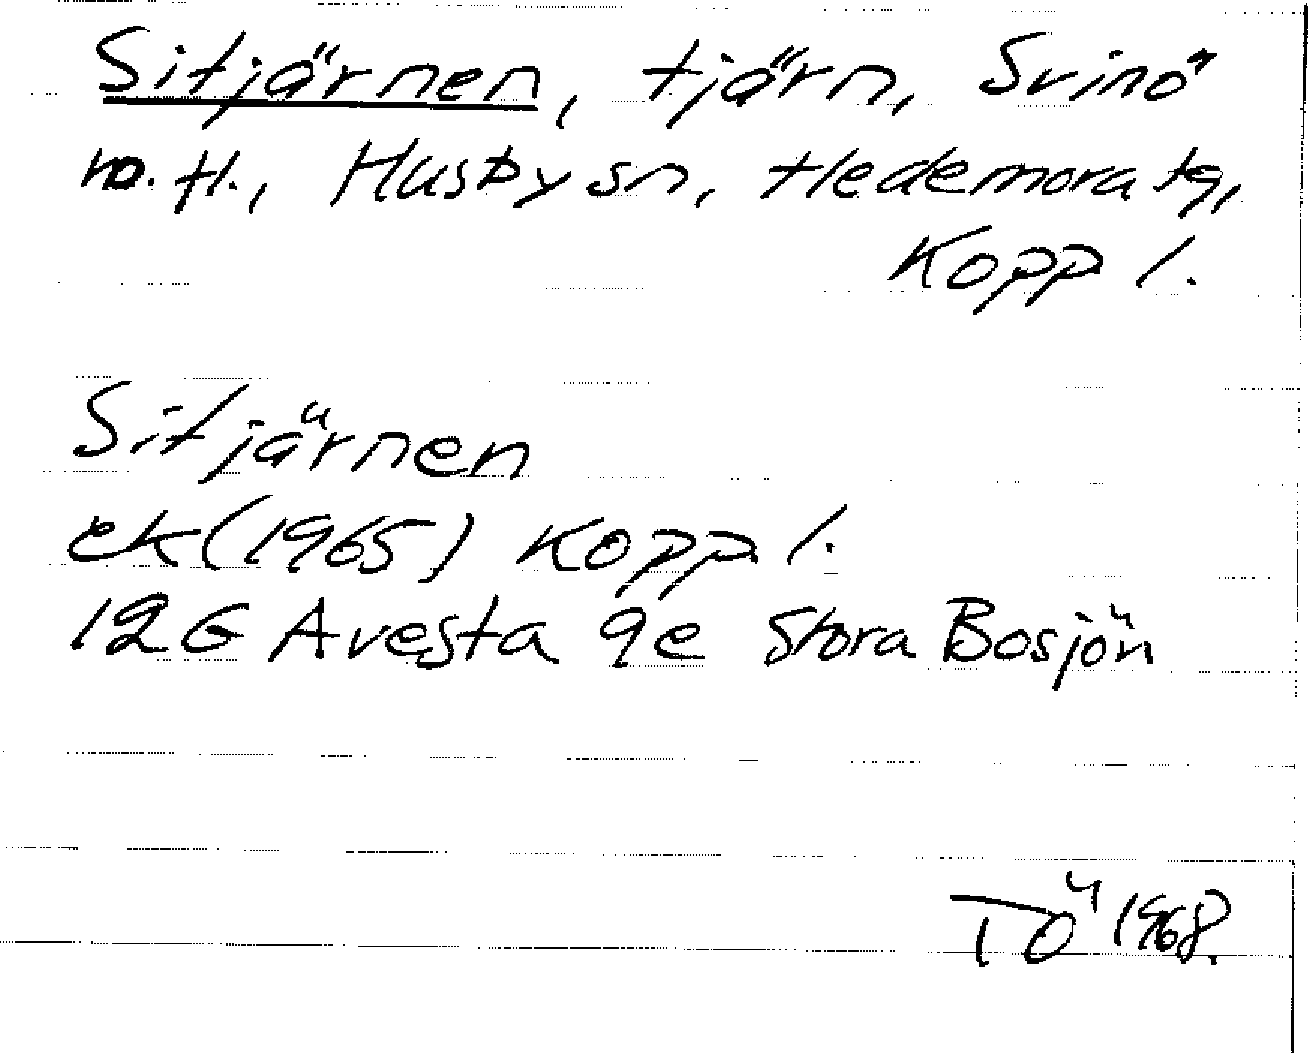 Sitjärnen, tjärn, Svinö
m. fl., Husby sn, Hedemora tg,
Kopp l.
Sitjärnen
ek (1965) Kopp l.
12G Avesta 9e Stora Bosjön
TÖ 1968.